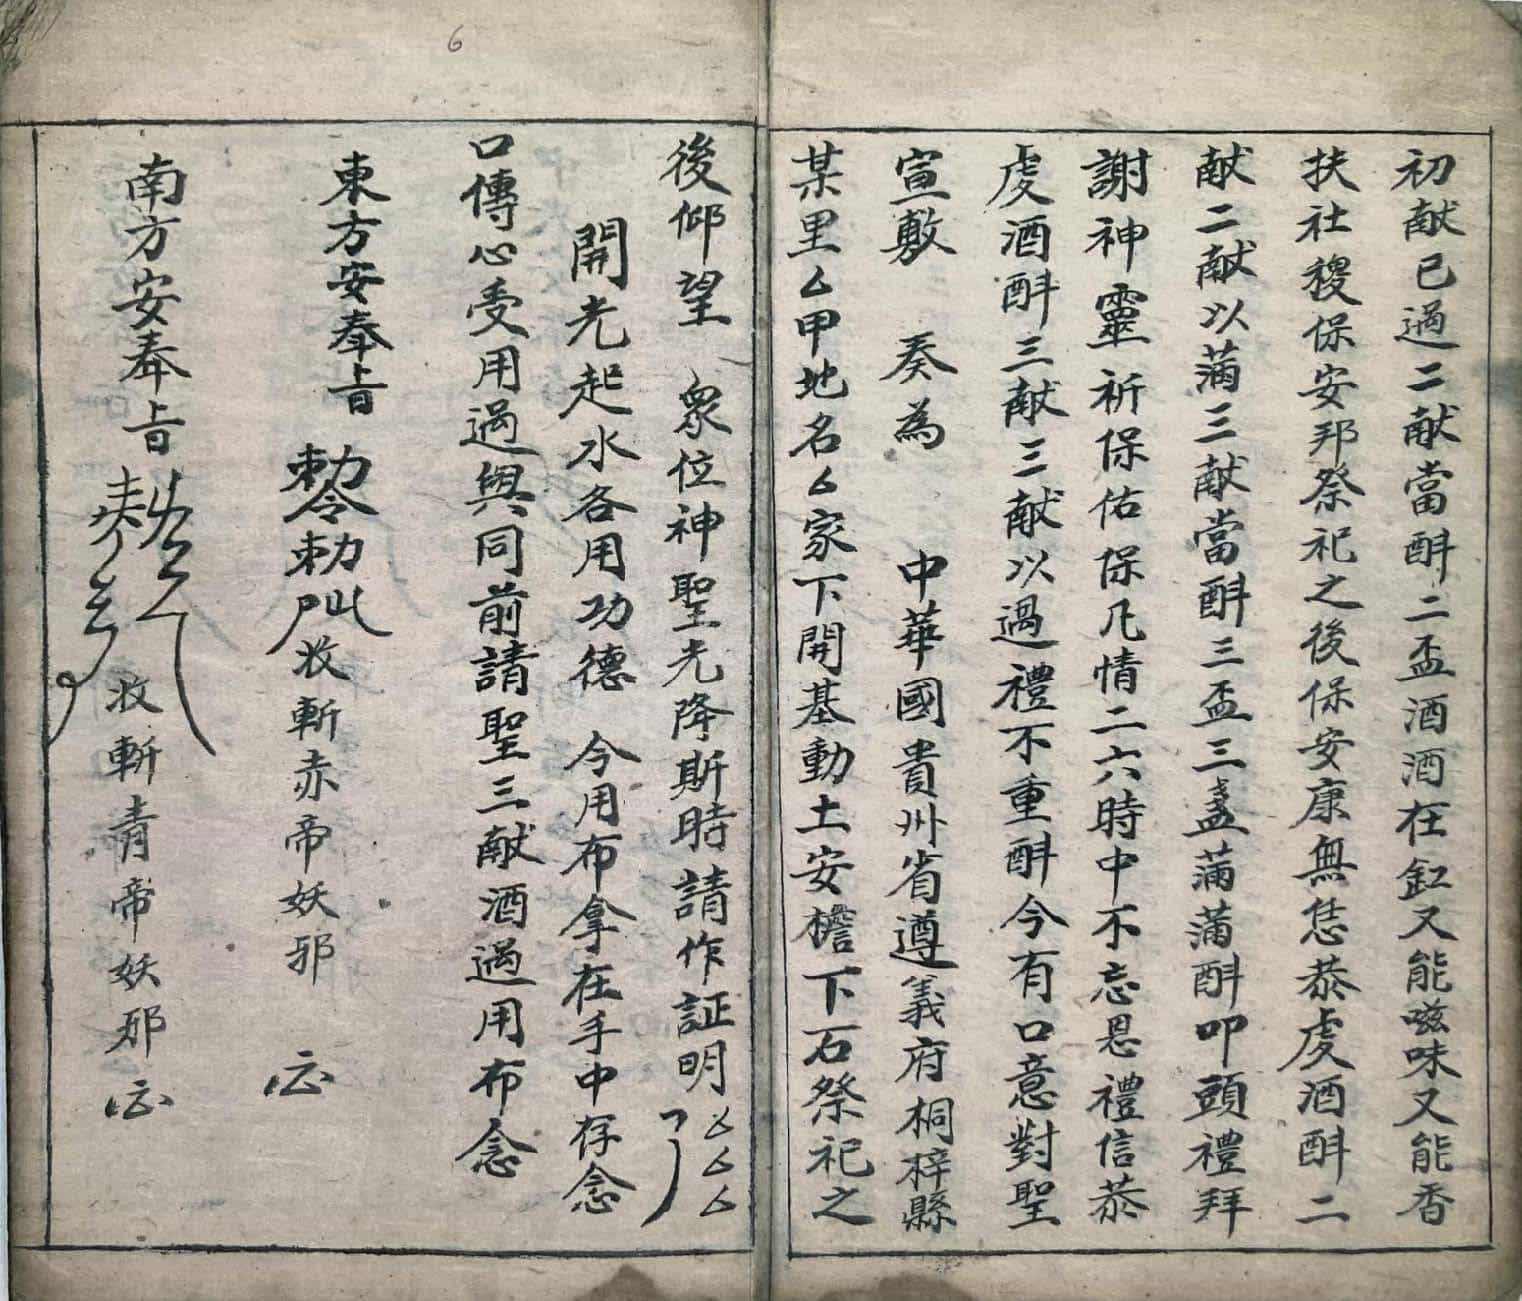 初献已過二献當酙二盃酒酒在缸又能滋味又能香
扶社稷保安邦祭祀之後保安康無恁恭虔酒酙二
献二献以蒲三献當酙三盃三盞蒲蒲酙叩頭禮拜
謝神靈祈保佑保凡情二六時中不忘恩禮信恭
虔酒酙三献三献以過禮不重酙今有口意對聖
宣敷 奏為 中華國貴州省遵義府桐梓縣
某里厶甲地名厶家下開基動土安檐下石祭祀之
後仰望 衆位神聖光降斯時請作証明厶厶厶
開光起水各用功德 今用布拿在手中存念
口傳心受用過與同前請聖三献酒過用布念
東方安奉旨 敕令敕 收斬赤帝妖邪
南方安奉旨 收斬青帝妖邪
6